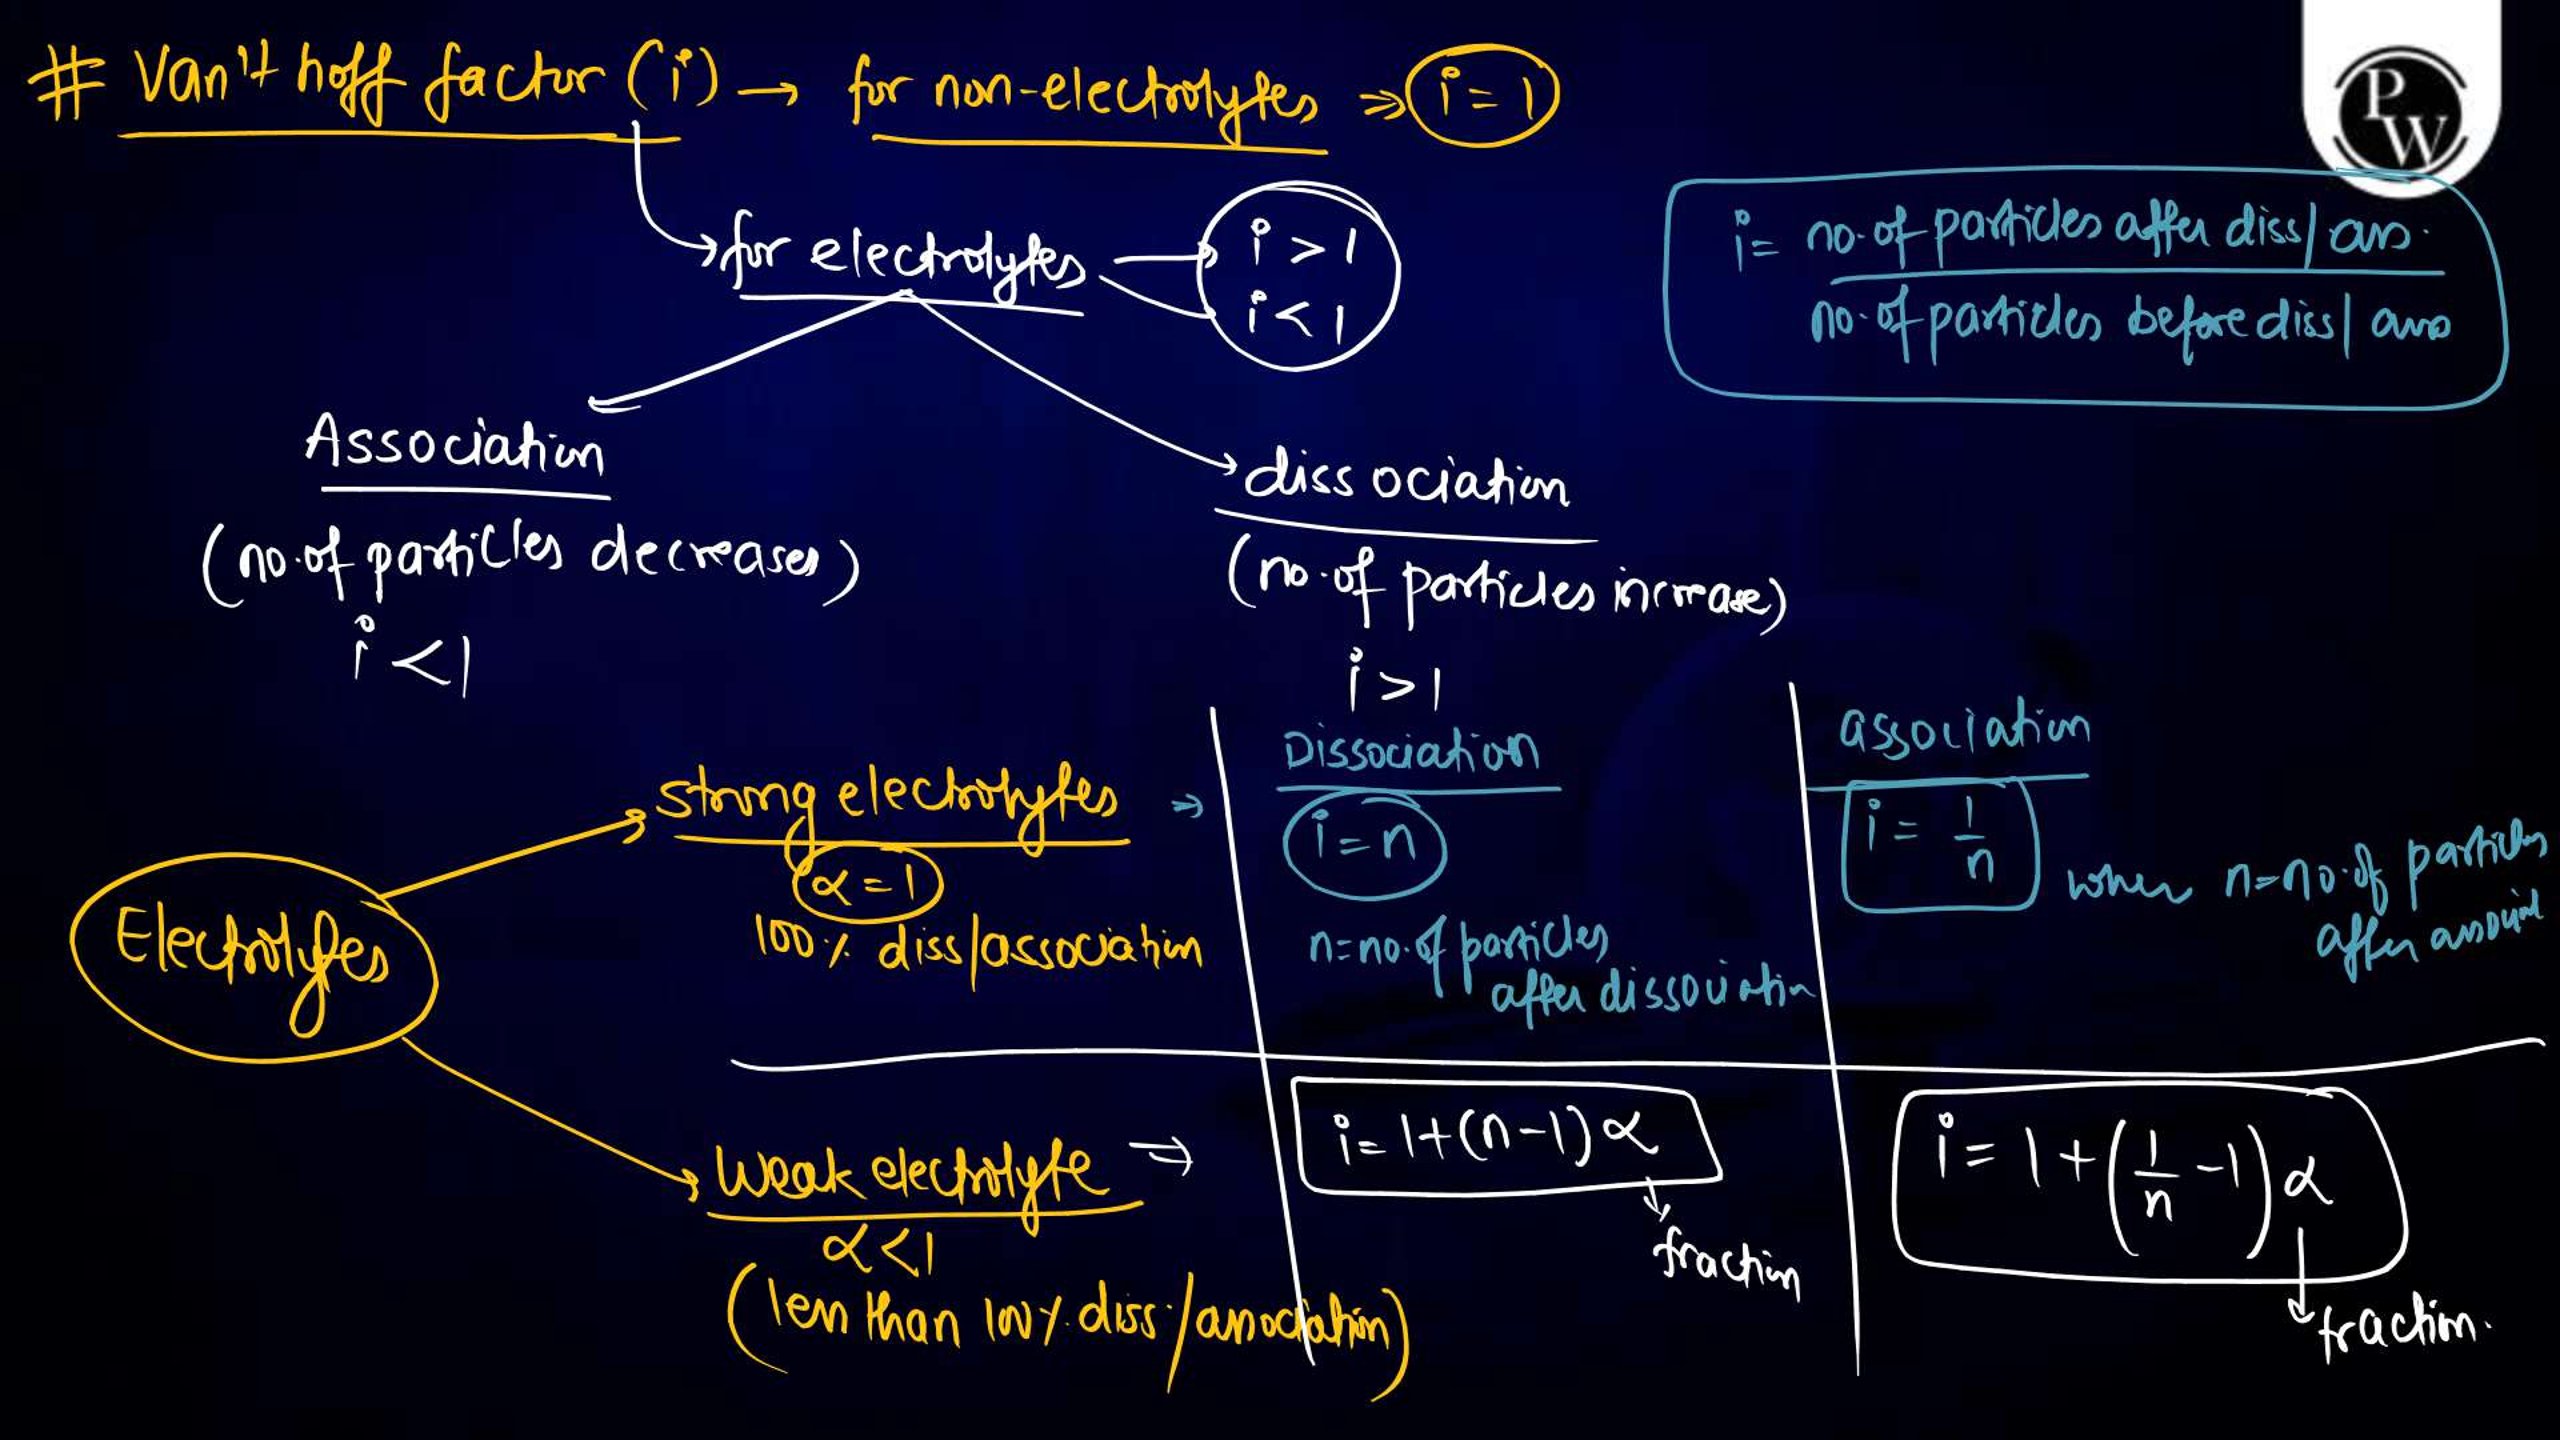 # Van't hoff factor (i) → for non-electrolytes ⇒ i = 1
PW
for electrolytes
i > 1
i < 1
i = no. of particles after diss/ass.
no. of particles before diss/ass
Association
(no. of particles decreases)
i < 1
dissociation
(no. of particles increase)
i > 1
Electrolytes
strong electrolytes →
α = 1
100% diss/association
Dissociation
i = n
n = no. of particles
after dissociation
association
i = 1/n
when n = no. of particles
after
weak electrolyte ⇒
α < 1
(less than 100% diss./association)
i = 1 + (n - 1) α
fraction
i = 1 + (1/n - 1) α
fraction.